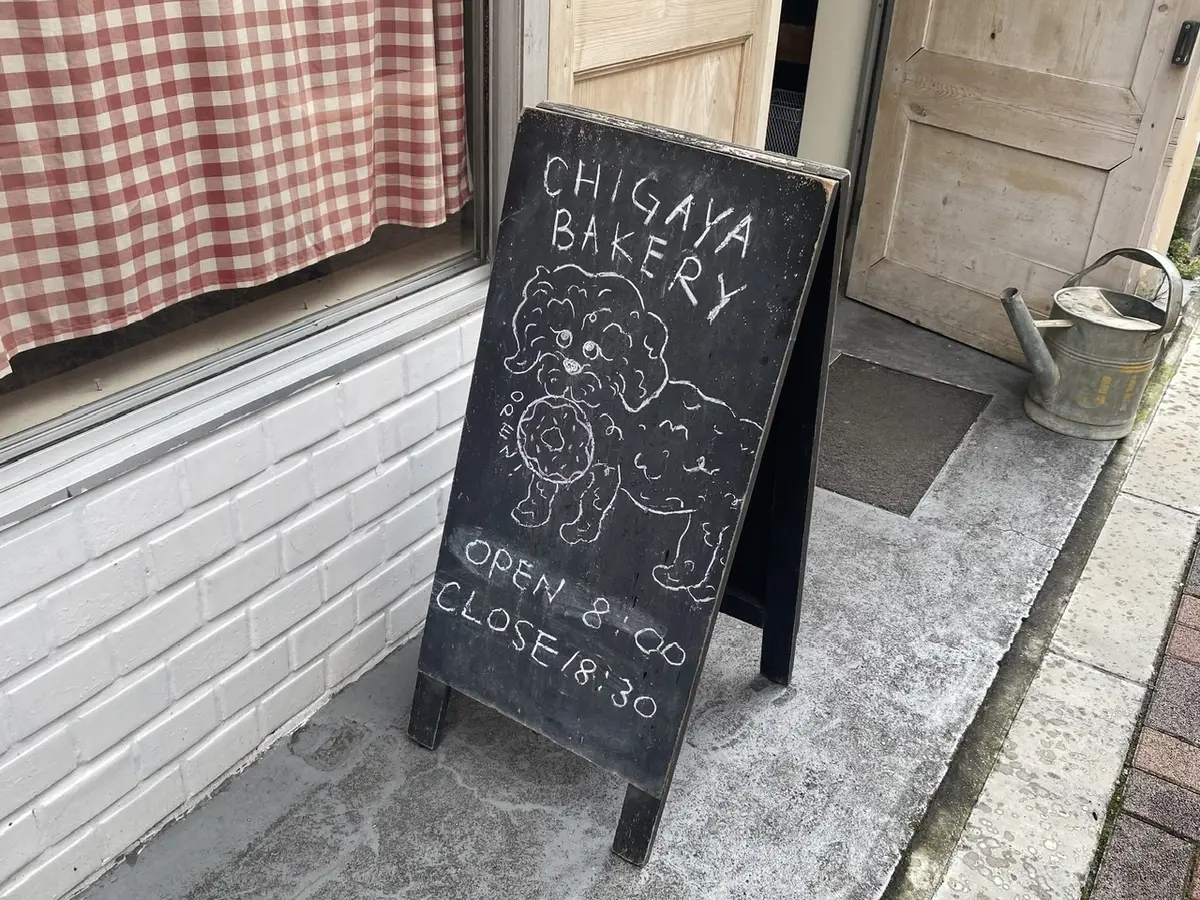 CHIGAYA
BAKERY
OPEN!
OPEN 8:00
CLOSE/18:30